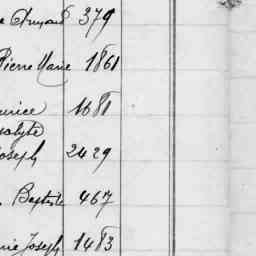 e Armand 379
Pierre Marie 1861
urice 1681
polyte
Joseph 2429
Baptiste 467
rie Joseph 1483